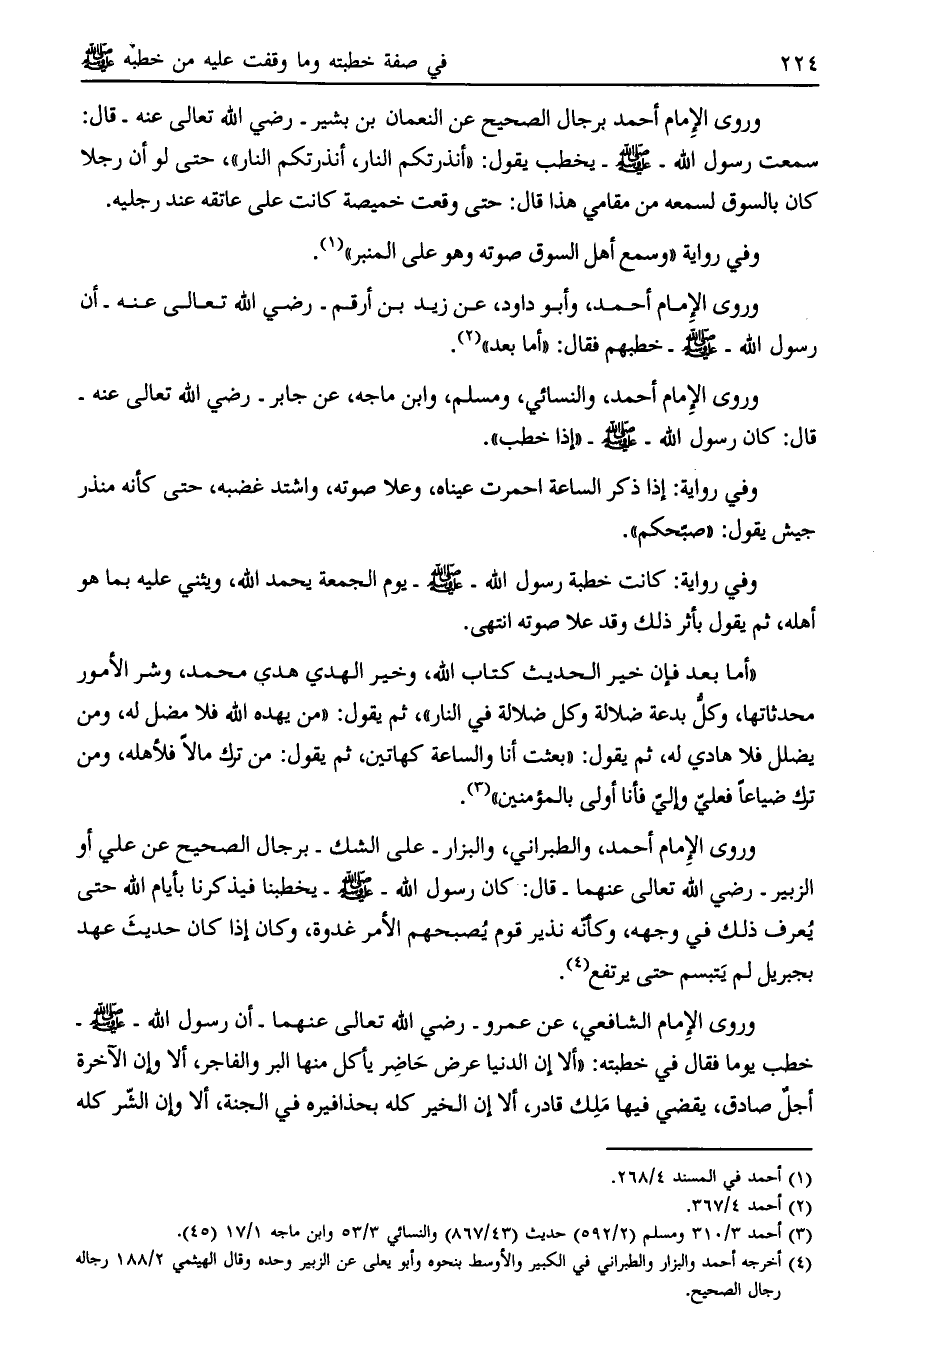 ٢٢٤ في صفة خطبته وما وقفت عليه من خطبه ﷺ
وروى الإِمام أحمد برجال الصحيح عن النعمان بن بشير ـ رضي الله تعالى عنه ـ قال:
سمعت رسول الله ـ ﷺ ـ يخطب يقول: «أنذرتكم النار، أنذرتكم النار»، حتى لو أن رجلا
كان بالسوق لسمعه من مقامي هذا قال: حتى وقعت خميصة كانت على عاتقه عند رجليه.
وفي رواية «وسمع أهل السوق صوته وهو على المنبر»(١).
وروى الإِمام أحمد، وأبو داود، عن زيد بن أرقم ـ رضي الله تعالى عنه ـ أن
رسول الله ـ ﷺ ـ خطبهم فقال: «أما بعد»(٢).
وروى الإِمام أحمد، والنسائي، ومسلم، وابن ماجه، عن جابر ـ رضي الله تعالى عنه ـ
قال: كان رسول الله ـ ﷺ ـ «إذا خطب».
وفي رواية: إذا ذكر الساعة احمرت عيناه، وعلا صوته، واشتد غضبه، حتى كأنه منذر
جيش يقول: «صبّحكم».
وفي رواية: كانت خطبة رسول الله ـ ﷺ ـ يوم الجمعة يحمد الله، ويثني عليه بما هو
أهله، ثم يقول بأثر ذلك وقد علا صوته انتهى.
«أما بعد فإن خير الحديث كتاب الله، وخير الهدي هدي محمد، وشر الأمور
محدثاتها، وكلُّ بدعة ضلالة وكل ضلالة في النار»، ثم يقول: «من يهده الله فلا مضل له، ومن
يضلل فلا هادي له، ثم يقول: «بعثت أنا والساعة كهاتين، ثم يقول: من ترك مالاً فلأهله، ومن
ترك ضياعاً فعليّ وإليّ فأنا أولى بالمؤمنين»(٣).
وروى الإِمام أحمد، والطبراني، والبزار ـ على الشك ـ برجال الصحيح عن علي أو
الزبير ـ رضي الله تعالى عنهما ـ قال: كان رسول الله ـ ﷺ ـ يخطبنا فيذكرنا بأيام الله حتى
يُعرف ذلك في وجهه، وكأنّه نذير قوم يُصبحهم الأمر غدوة، وكان إذا كان حديثَ عهد
بجبريل لم يَتبسم حتى يرتفع(٤).
وروى الإِمام الشافعي، عن عمرو ـ رضي الله تعالى عنهما ـ أن رسول الله ـ ﷺ ـ
خطب يوما فقال في خطبته: «ألا إن الدنيا عرض حَاضِر يأكل منها البر والفاجر، ألا وإن الآخرة
أجلٌ صادق، يقضي فيها مَلِك قادر، ألا إن الخير كله بحذافيره في الجنة، ألا وإن الشّر كله
(١) أحمد في المسند ٢٦٨/٤.
(٢) أحمد ٣٦٧/٤.
(٣) أحمد ٣١٠/٣ ومسلم (٥٩٢/٢) حديث (٨٦٧/٤٣) والنسائي ٥٣/٣ وابن ماجه ١٧/١ (٤٥).
(٤) أخرجه أحمد والبزار والطبراني في الكبير والأوسط بنحوه وأبو يعلى عن الزبير وحده وقال الهيثمي ١٨٨/٢ رجاله
رجال الصحيح.